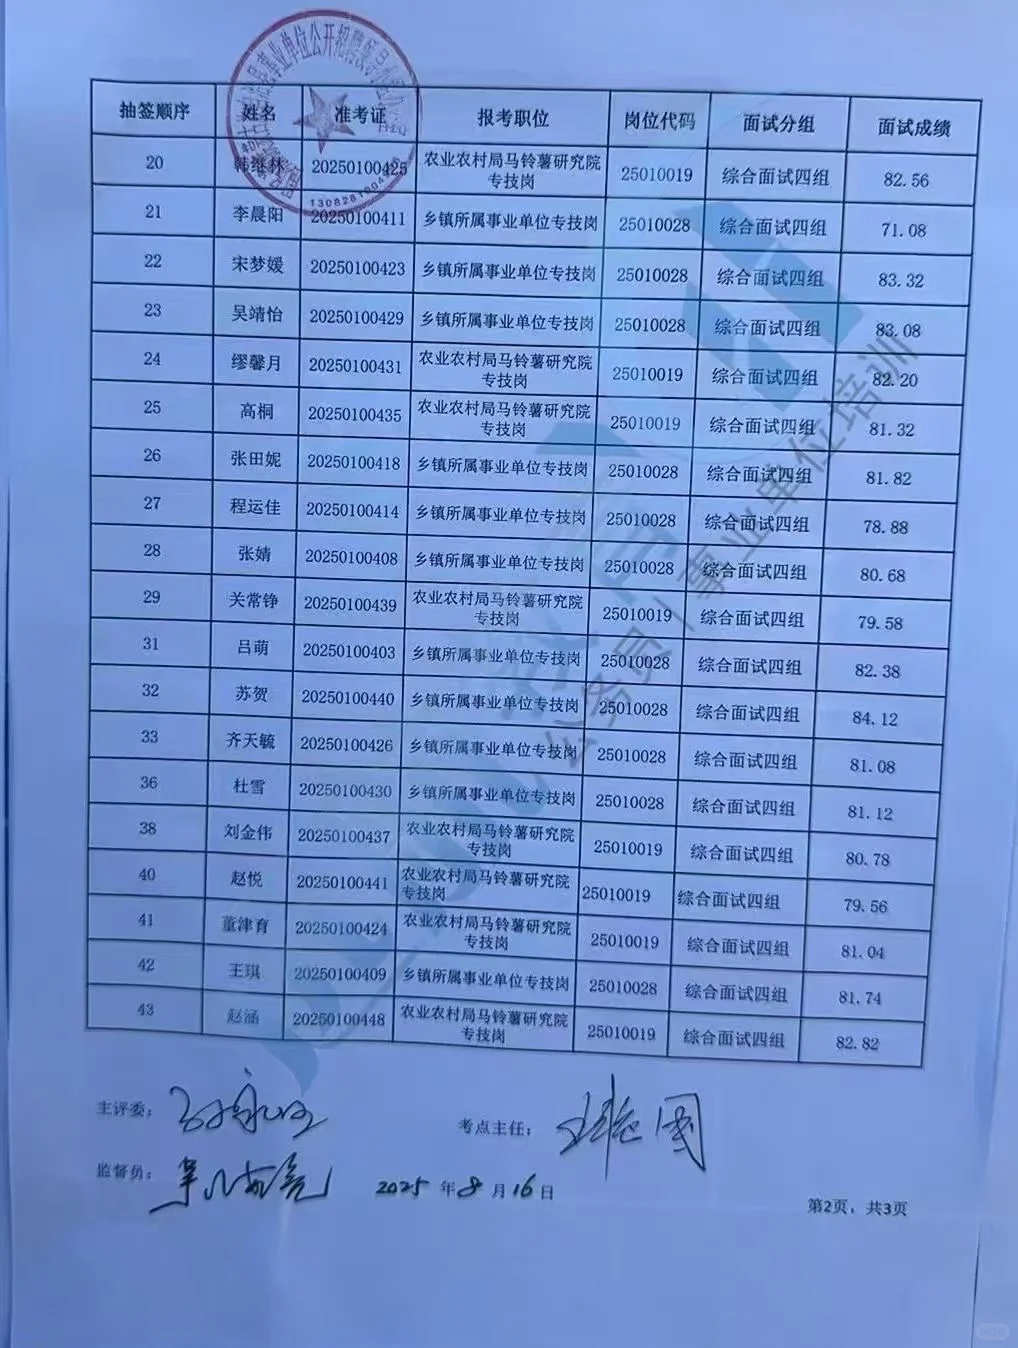 抽签顺序 姓名 准考证 报考职位 岗位代码 面试分组 面试成绩
20 韩继林 20250100425 农业农村局马铃薯研究院专技岗 25010019 综合面试四组 82.56
21 李晨阳 20250100411 乡镇所属事业单位专技岗 25010028 综合面试四组 71.08
22 宋梦媛 20250100423 乡镇所属事业单位专技岗 25010028 综合面试四组 83.32
23 吴靖怡 20250100429 乡镇所属事业单位专技岗 25010028 综合面试四组 83.08
24 缪馨月 20250100431 农业农村局马铃薯研究院专技岗 25010019 综合面试四组 82.20
25 高桐 20250100435 农业农村局马铃薯研究院专技岗 25010019 综合面试四组 81.32
26 张田妮 20250100418 乡镇所属事业单位专技岗 25010028 综合面试四组 81.82
27 程运佳 20250100414 乡镇所属事业单位专技岗 25010028 综合面试四组 78.88
28 张婧 20250100408 乡镇所属事业单位专技岗 25010028 综合面试四组 80.68
29 关常铮 20250100439 农业农村局马铃薯研究院专技岗 25010019 综合面试四组 79.58
31 吕萌 20250100403 乡镇所属事业单位专技岗 25010028 综合面试四组 82.38
32 苏贺 20250100440 乡镇所属事业单位专技岗 25010028 综合面试四组 84.12
33 齐天毓 20250100426 乡镇所属事业单位专技岗 25010028 综合面试四组 81.08
36 杜雪 20250100430 乡镇所属事业单位专技岗 25010028 综合面试四组 81.12
38 刘金伟 20250100437 农业农村局马铃薯研究院专技岗 25010019 综合面试四组 80.78
40 赵悦 20250100441 农业农村局马铃薯研究院专技岗 25010019 综合面试四组 79.56
41 董津育 20250100424 农业农村局马铃薯研究院专技岗 25010019 综合面试四组 81.04
42 王琪 20250100409 乡镇所属事业单位专技岗 25010028 综合面试四组 81.74
43 赵涵 20250100448 农业农村局马铃薯研究院专技岗 25010019 综合面试四组 82.82
主评委： 考点主任：
监督员： 2025年8月16日
第2页，共3页
公务员|事业单位培训